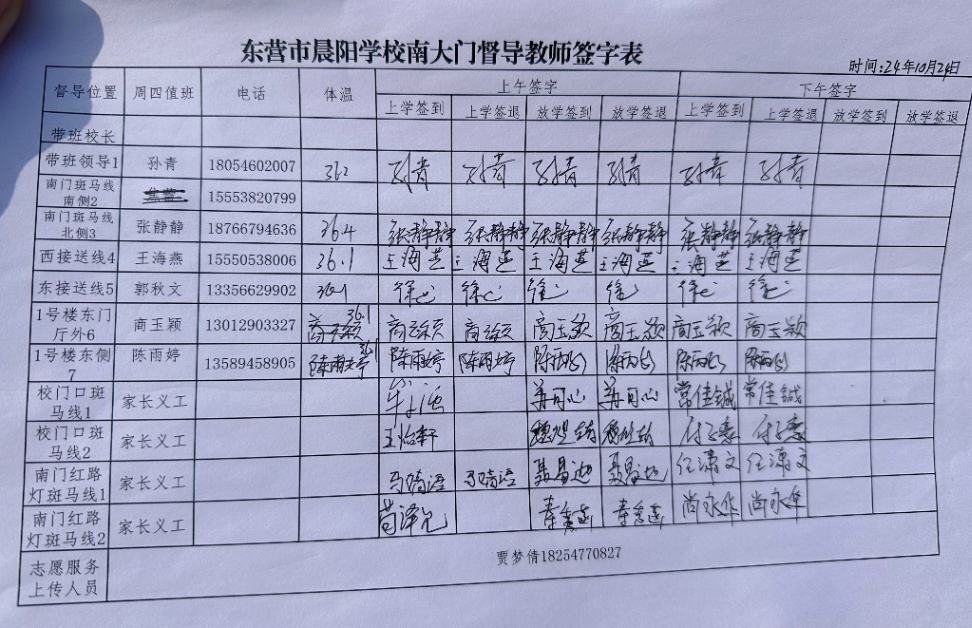 东营市晨阳学校南大门督导教师签字表
时间:24年10月24日
督导位置 周四值班 电话 体温 上午签字 下午签字
上学签到 上学签退 放学签到 放学签退 上学签到 上学签退 放学签到 放学签退
带班校长
带班领导1 孙青 18054602007 36.2 孙青 孙青 孙青 孙青 孙青 孙青
南门斑马线
南侧2 15553820799
南门斑马线
北侧3 张静静 18766794636 36.4 张静静 张静静 张静静 张静静 张静静 张静静
西接送线4 王海燕 15550538006 36.1 王海燕 王海燕 王海燕 王海燕 王海燕 王海燕
东接送线5 郭秋文 13356629902 36.1
1号楼东门
厅外6 商玉颖 13012903327 商玉颖 36.1 商玉颖 商玉颖 商玉颖 商玉颖 商玉颖 商玉颖
1号楼东侧
7 陈雨婷 13589458905 陈雨婷 陈雨婷 陈雨婷 陈雨婷 陈雨婷 陈雨婷 陈雨婷
校门口斑
马线1 家长义工 常佳铖 常佳铖
校门口斑
马线2 家长义工 王怡轩
南门红路
灯斑马线1 家长义工 马琦语 马琦语 任潇文 任潇文
南门红路
灯斑马线2 家长义工 苟泽允 尚永华 尚永华
志愿服务
上传人员 贾梦倩18254770827